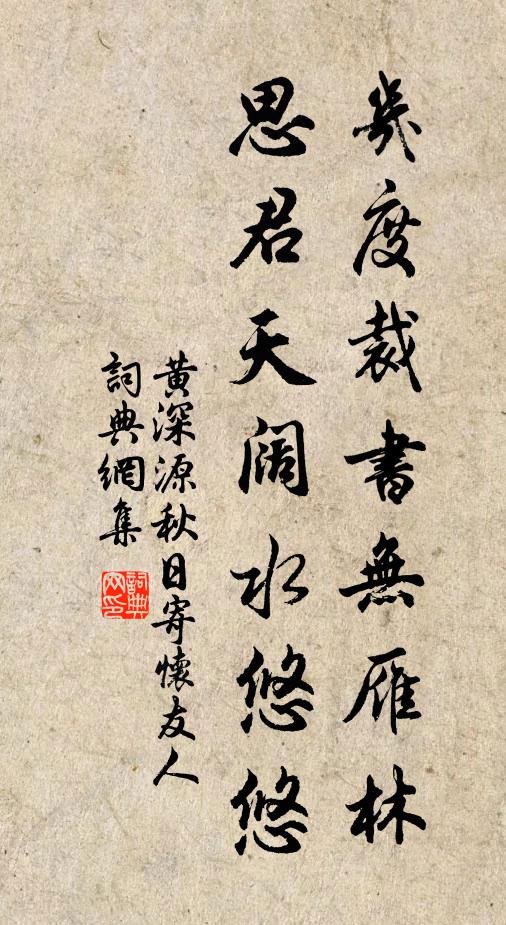 幾度裁書無雁林
思君天阔水悠悠
黄深源秋日寄懷友人
詞典網集
詞典
网印